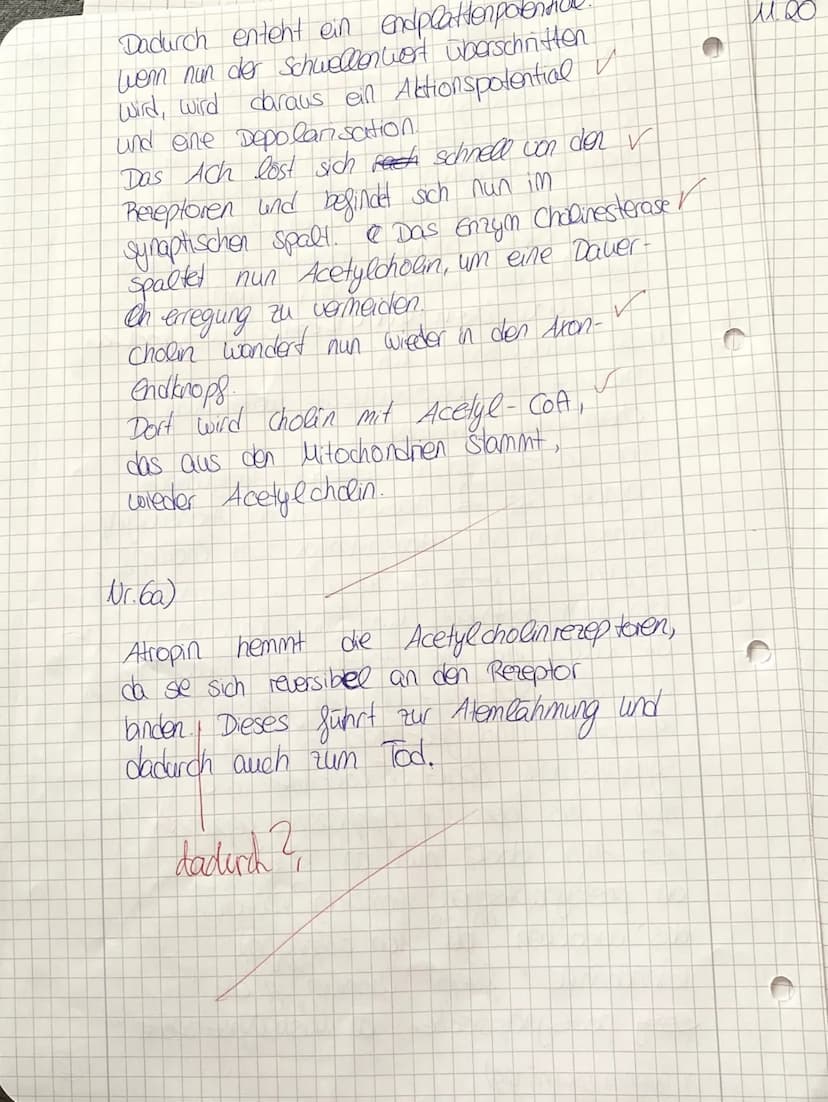 11.20
Dadurch enteht ein Endplattenpotential.
Wenn nun der Schwellenwert überschritten
wird, wird daraus ein Aktionspotential
und eine Depolarisation.
Das ACh löst sich schnell von den
Rezeptoren und befindet sich nun im
synaptischen Spalt. Das Enzym Cholinesterase
spaltet nun Acetylcholin, um eine Dauer-
erregung zu vermeiden.
Cholin wandert nun wieder in den Axon-
Endknopf.
Dort wird Cholin mit Acetyl-CoA,
das aus den Mitochondrien stammt,
wieder Acetylcholin.
Nr. 6a)
Atropin hemmt die Acetylcholinrezeptoren,
da sie sich reversibel an den Rezeptor
binden. Dieses führt zur Atemlähmung und
dadurch auch zum Tod.
dadurch?